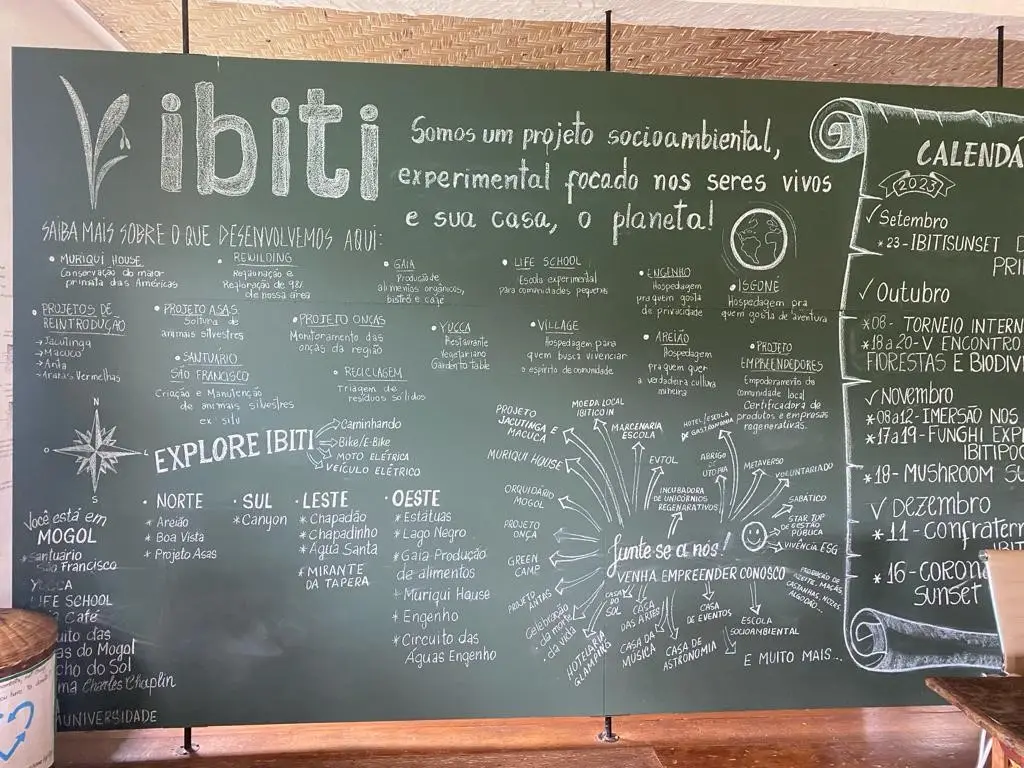 ibiti
Somos um projeto socioambiental,
experimental focado nos seres vivos
e sua casa, o planeta!
SAIBA MAIS SOBRE O QUE DESENVOLVEMOS AQUI:
• MURIQUI HOUSE
Conservação do maior
primata das Américas
• REWILDING
Regeneração e
de nossa área
• GAIA
Produção de
alimentos orgânicos,
bistrô e café
• LIFE SCHOOL
Escola experimental
para comunidades pequenas
• ENGENHO
Hospedagem
pra quem gosta
de privacidade
• ISGONÉ
Hospedagem pra
quem gosta de aventura
• PROJETOS DE
REINTRODUÇÃO
→ Jacutinga
→ Macuco
→ Anta
→ Araras Vermelhas
• PROJETO ASAS
Soltura de
animais silvestres
• SANTUÁRIO
SÃO FRANCISCO
Criação e Manutenção
de animais silvestres
ex situ
• PROJETO ONÇAS
Monitoramento das
onças da região
• RECICLAGEM
Triagem de
resíduos sólidos
• YUCCA
Restaurante
Vegetariano
Garden to table
• VILLAGE
Hospedagem para
quem busca vivenciar
o espírito de comunidade
• AREIÃO
Hospedagem
pra quem quer
a verdadeira cultura
mineira
• PROJETO
EMPREENDEDORES
Empoderamento da
comunidade local
Certificadora de
produtos e empresas
regenerativas.
N
O
L
S
EXPLORE IBITI
Caminhando
Bike/E-Bike
MOTO ELÉTRICA
VEÍCULO ELÉTRICO
Você está em
MOGOL
* Santuário
São Francisco
YUCCA
LIFE SCHOOL
Café
cuito das
as do Mogol
cho do Sol
ma Charles Chaplin
UNIVERSIDADE
• NORTE
* Areião
* Boa Vista
* Projeto Asas
• SUL
* Canyon
• LESTE
* Chapadão
* Chapadinho
* Água Santa
* MIRANTE
DA TAPERA
• OESTE
* Estátuas
* Lago Negro
* Gaia Produção
de alimentos
* Muriqui House
* Engenho
* Circuito das
Águas Engenho
Junte se a nós!
VENHA EMPREENDER CONOSCO
MURIQUI HOUSE
PROJETO
JACUTINGA E
MACUCA
MOEDA LOCAL
IBITICOIN
MARCENARIA
ESCOLA
EVTOL
INCUBADORA
DE UNICÓRNIOS
REGENERATIVOS
HOTEL/ESCOLA
DE GASTRONOMIA
ABRIGO
DE
UTOPIA
METAVERSO
VOLUNTARIADO
SABÁTICO
START UP
DE GESTÃO
PÚBLICA
VIVÊNCIA ESG
PRODUÇÃO DE
AZEITE, MAÇÃS,
CASTANHAS, NOZES,
ALGODÃO...
ORQUIDÁRIO
MOGOL
PROJETO
ONÇA
GREEN
CAMP
PROJETO
ANTAS
Celebração
da morte
da vida
HOTELARIA
GLAMPING
CASA
DO
SOL
CASA
DAS ARTES
CASA DA
MÚSICA
CASA DE
ASTRONOMIA
CASA
DE EVENTOS
ESCOLA
SOCIOAMBIENTAL
E MUITO MAIS...
CALENDÁ
2023
✓ Setembro
* 23 - IBITISUNSET D
PRI
✓ Outubro
* 08 - TORNEIO INTERN
* 18 a 20 - V ENCONTRO
FLORESTAS E BIODIV
✓ NOVEMBRO
* 08 a 12 - IMERSÃO NOS
* 17 a 19 - FUNGHI EXP
IBITIPOC
* 18 - MUSHROOM SU
✓ DEZEMBRO
* 11 - Confratern
IBIT
* 16 - CORON
SUNSET